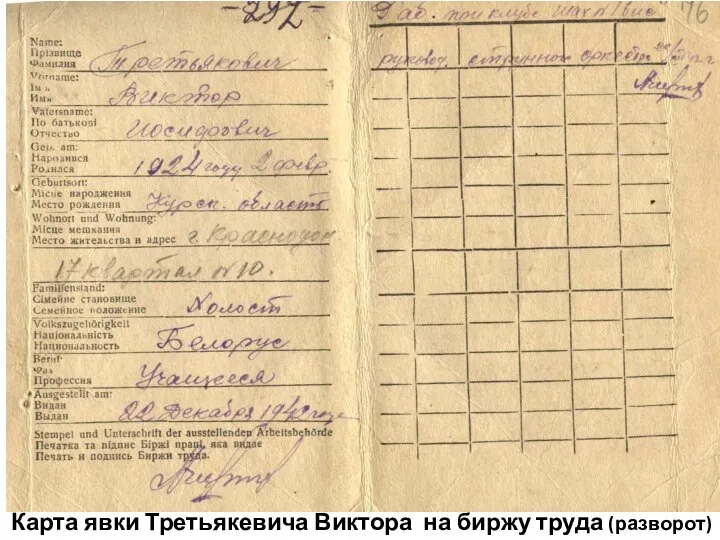 -292-
Name:
Прізвище
Фамилия Третьякович
Vorname:
Ім'я
Имя Виктор
Vatersname:
По батькові
Отчество Иосифович
Geb. am:
Народився
Родился 1924 году 2 февр.
Geburtsort:
Місце народження
Место рождения Курск. область
Wohnort und Wohnung:
Місце мешкання
Место жительства и адрес г. Краснодон
17 квартал № 10.
Familienstand:
Сімейне становище
Семейное положение Холост
Volkszugehörigkeit
Національність
Национальность Белорус
Beruf:
Фах
Профессия Учащееся
Ausgestellt am:
Видан
Выдан 22 Декабря 194 года
Stempel und Unterschrift der ausstellenden Arbeitsbehörde
Печатка та підпис Біржі праці, яка видає
Печать и подпись Биржи труда.
Раб. при клубе
руковод. струнном оркестр
Карта явки Третьякевича Виктора на биржу труда (разворот)